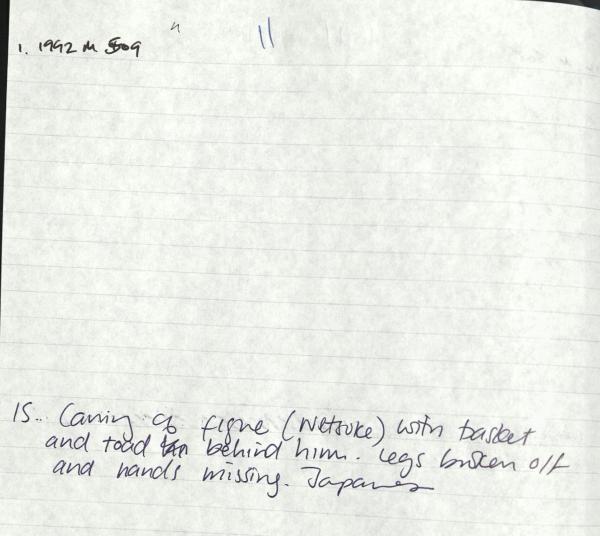 "
11
1. 1992 M 509
15. Carving of figure (Netsuke) with basket
and toad behind him. Legs broken off
and hands missing. Japanese